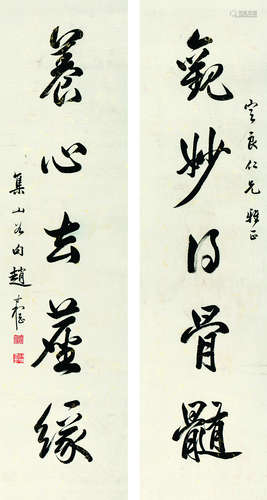 觀妙得骨髓
良仁兄雅正
養心去塵緣
集山谷句趙